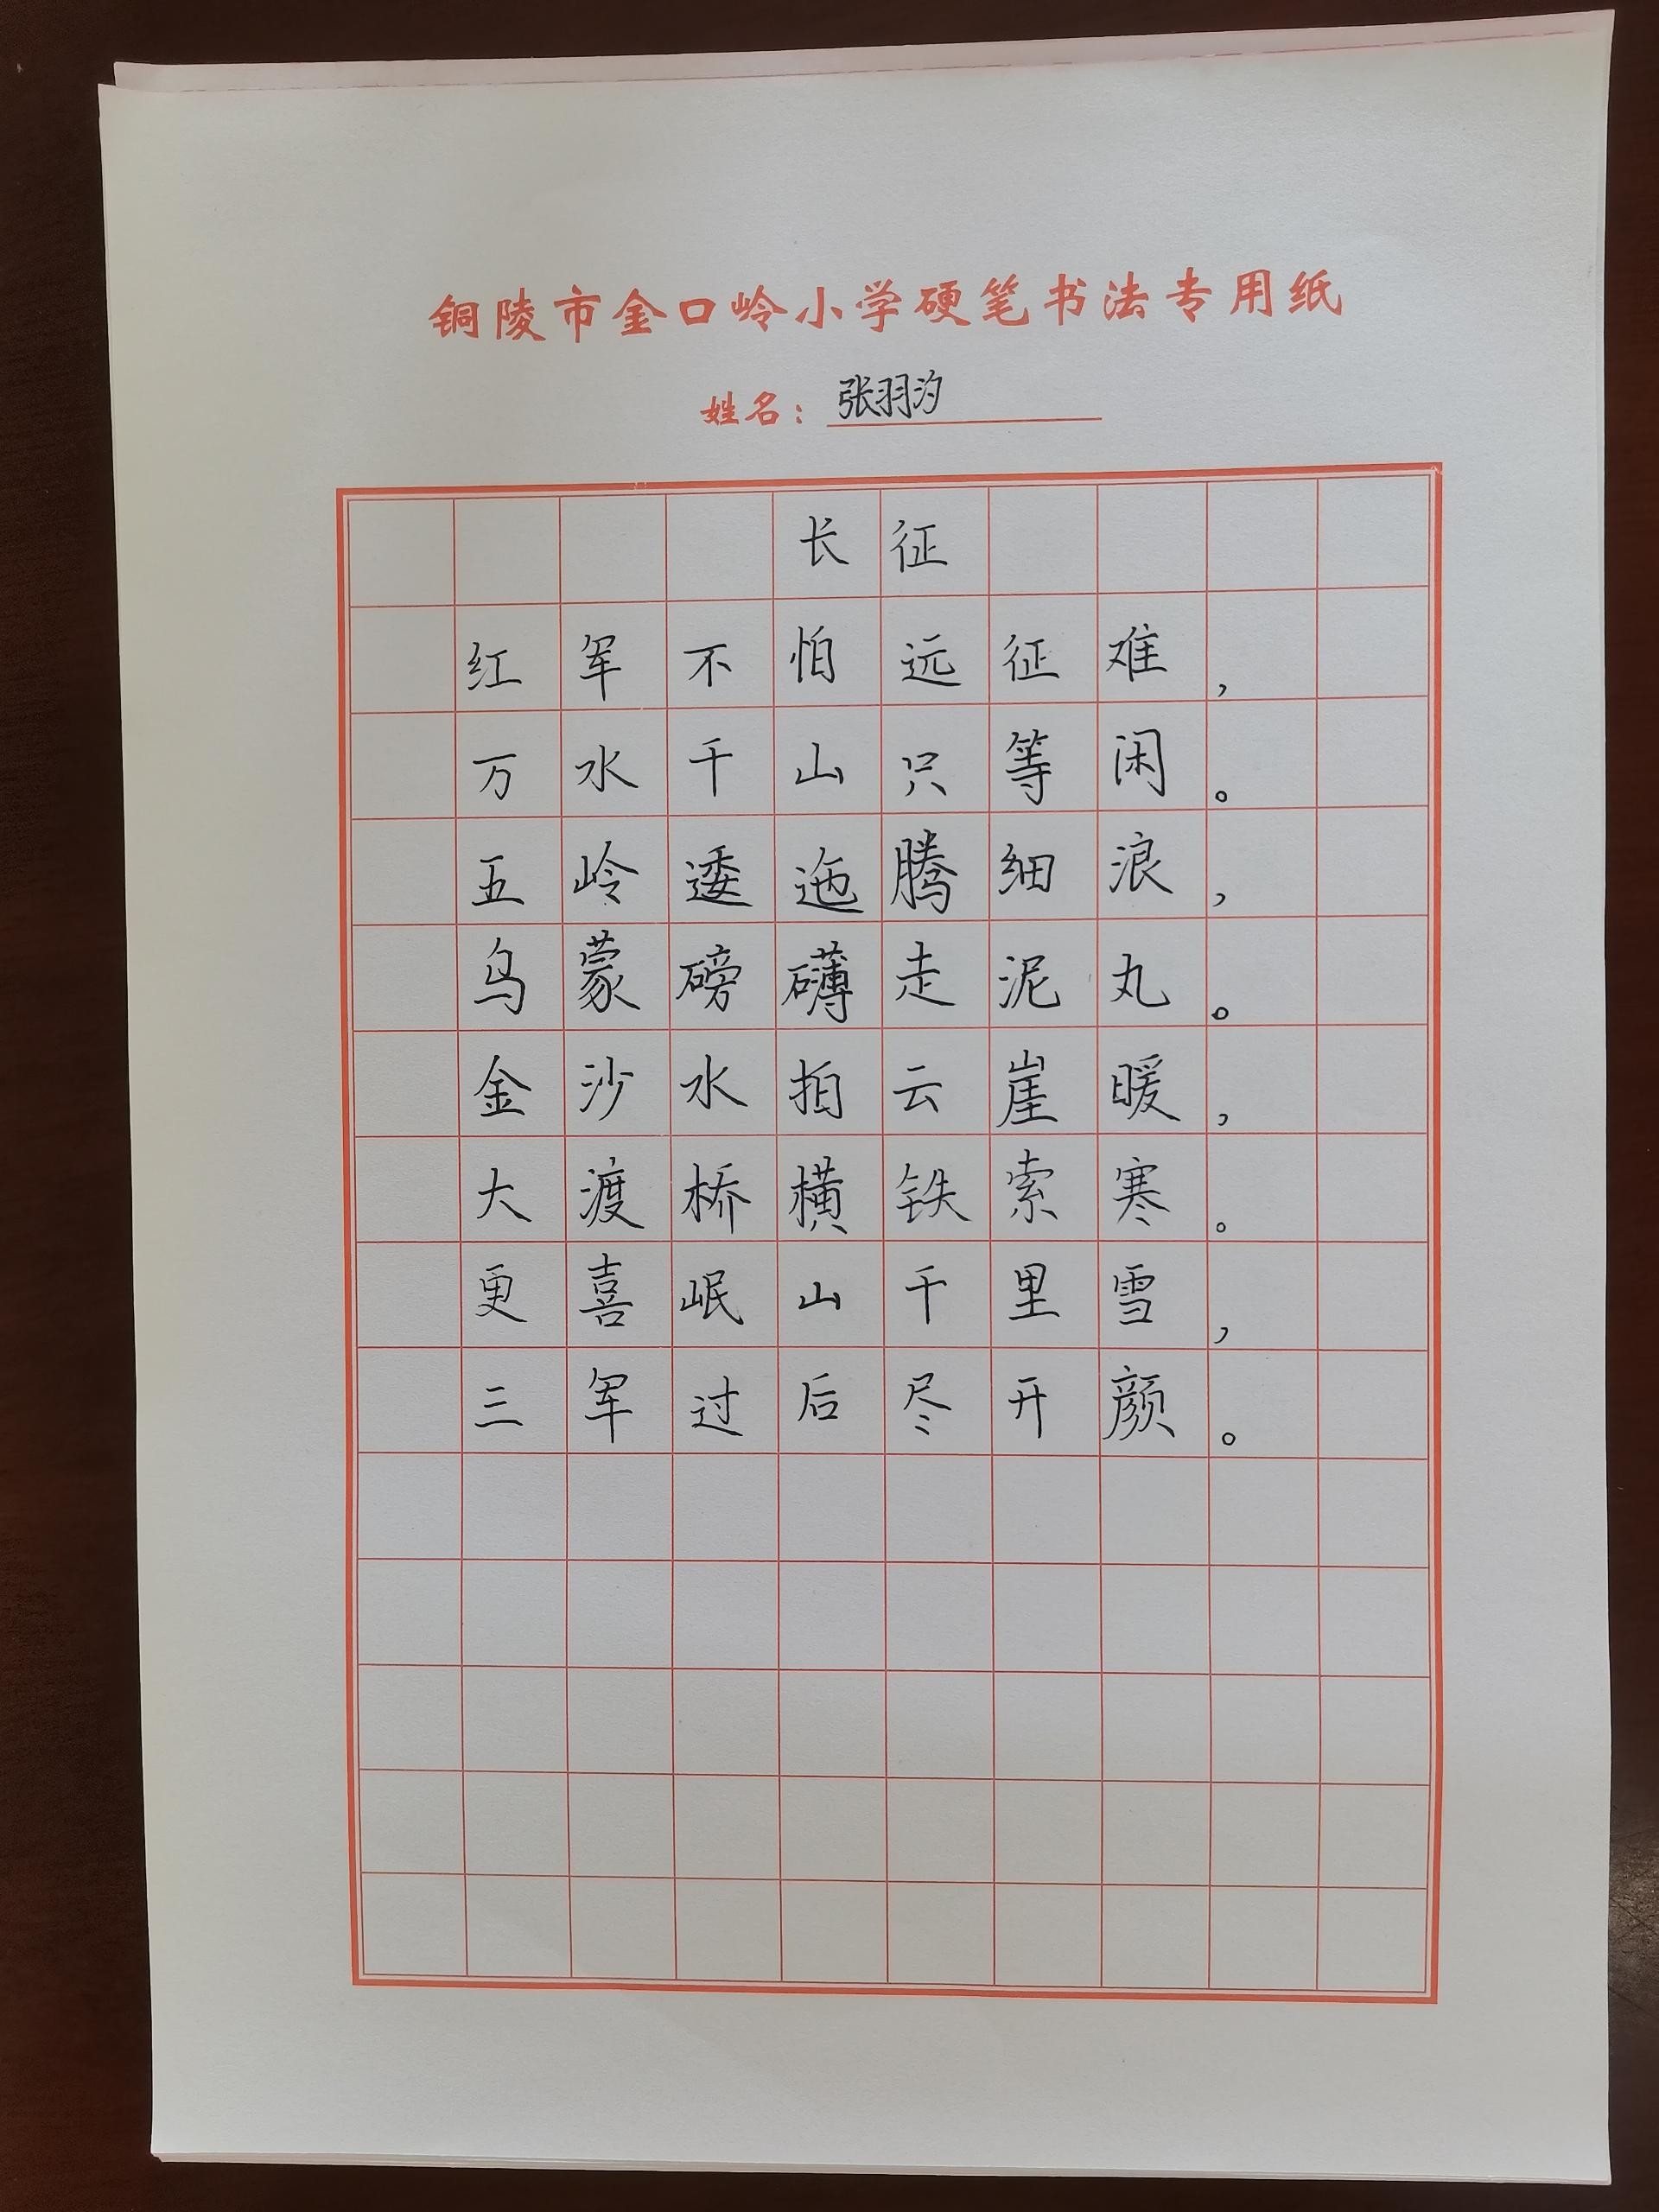 铜陵市金口岭小学硬笔书法专用纸
姓名：张羽汐
长征
红军不怕远征难，
万水千山只等闲。
五岭逶迤腾细浪，
乌蒙磅礴走泥丸。
金沙水拍云崖暖，
大渡桥横铁索寒。
更喜岷山千里雪，
三军过后尽开颜。